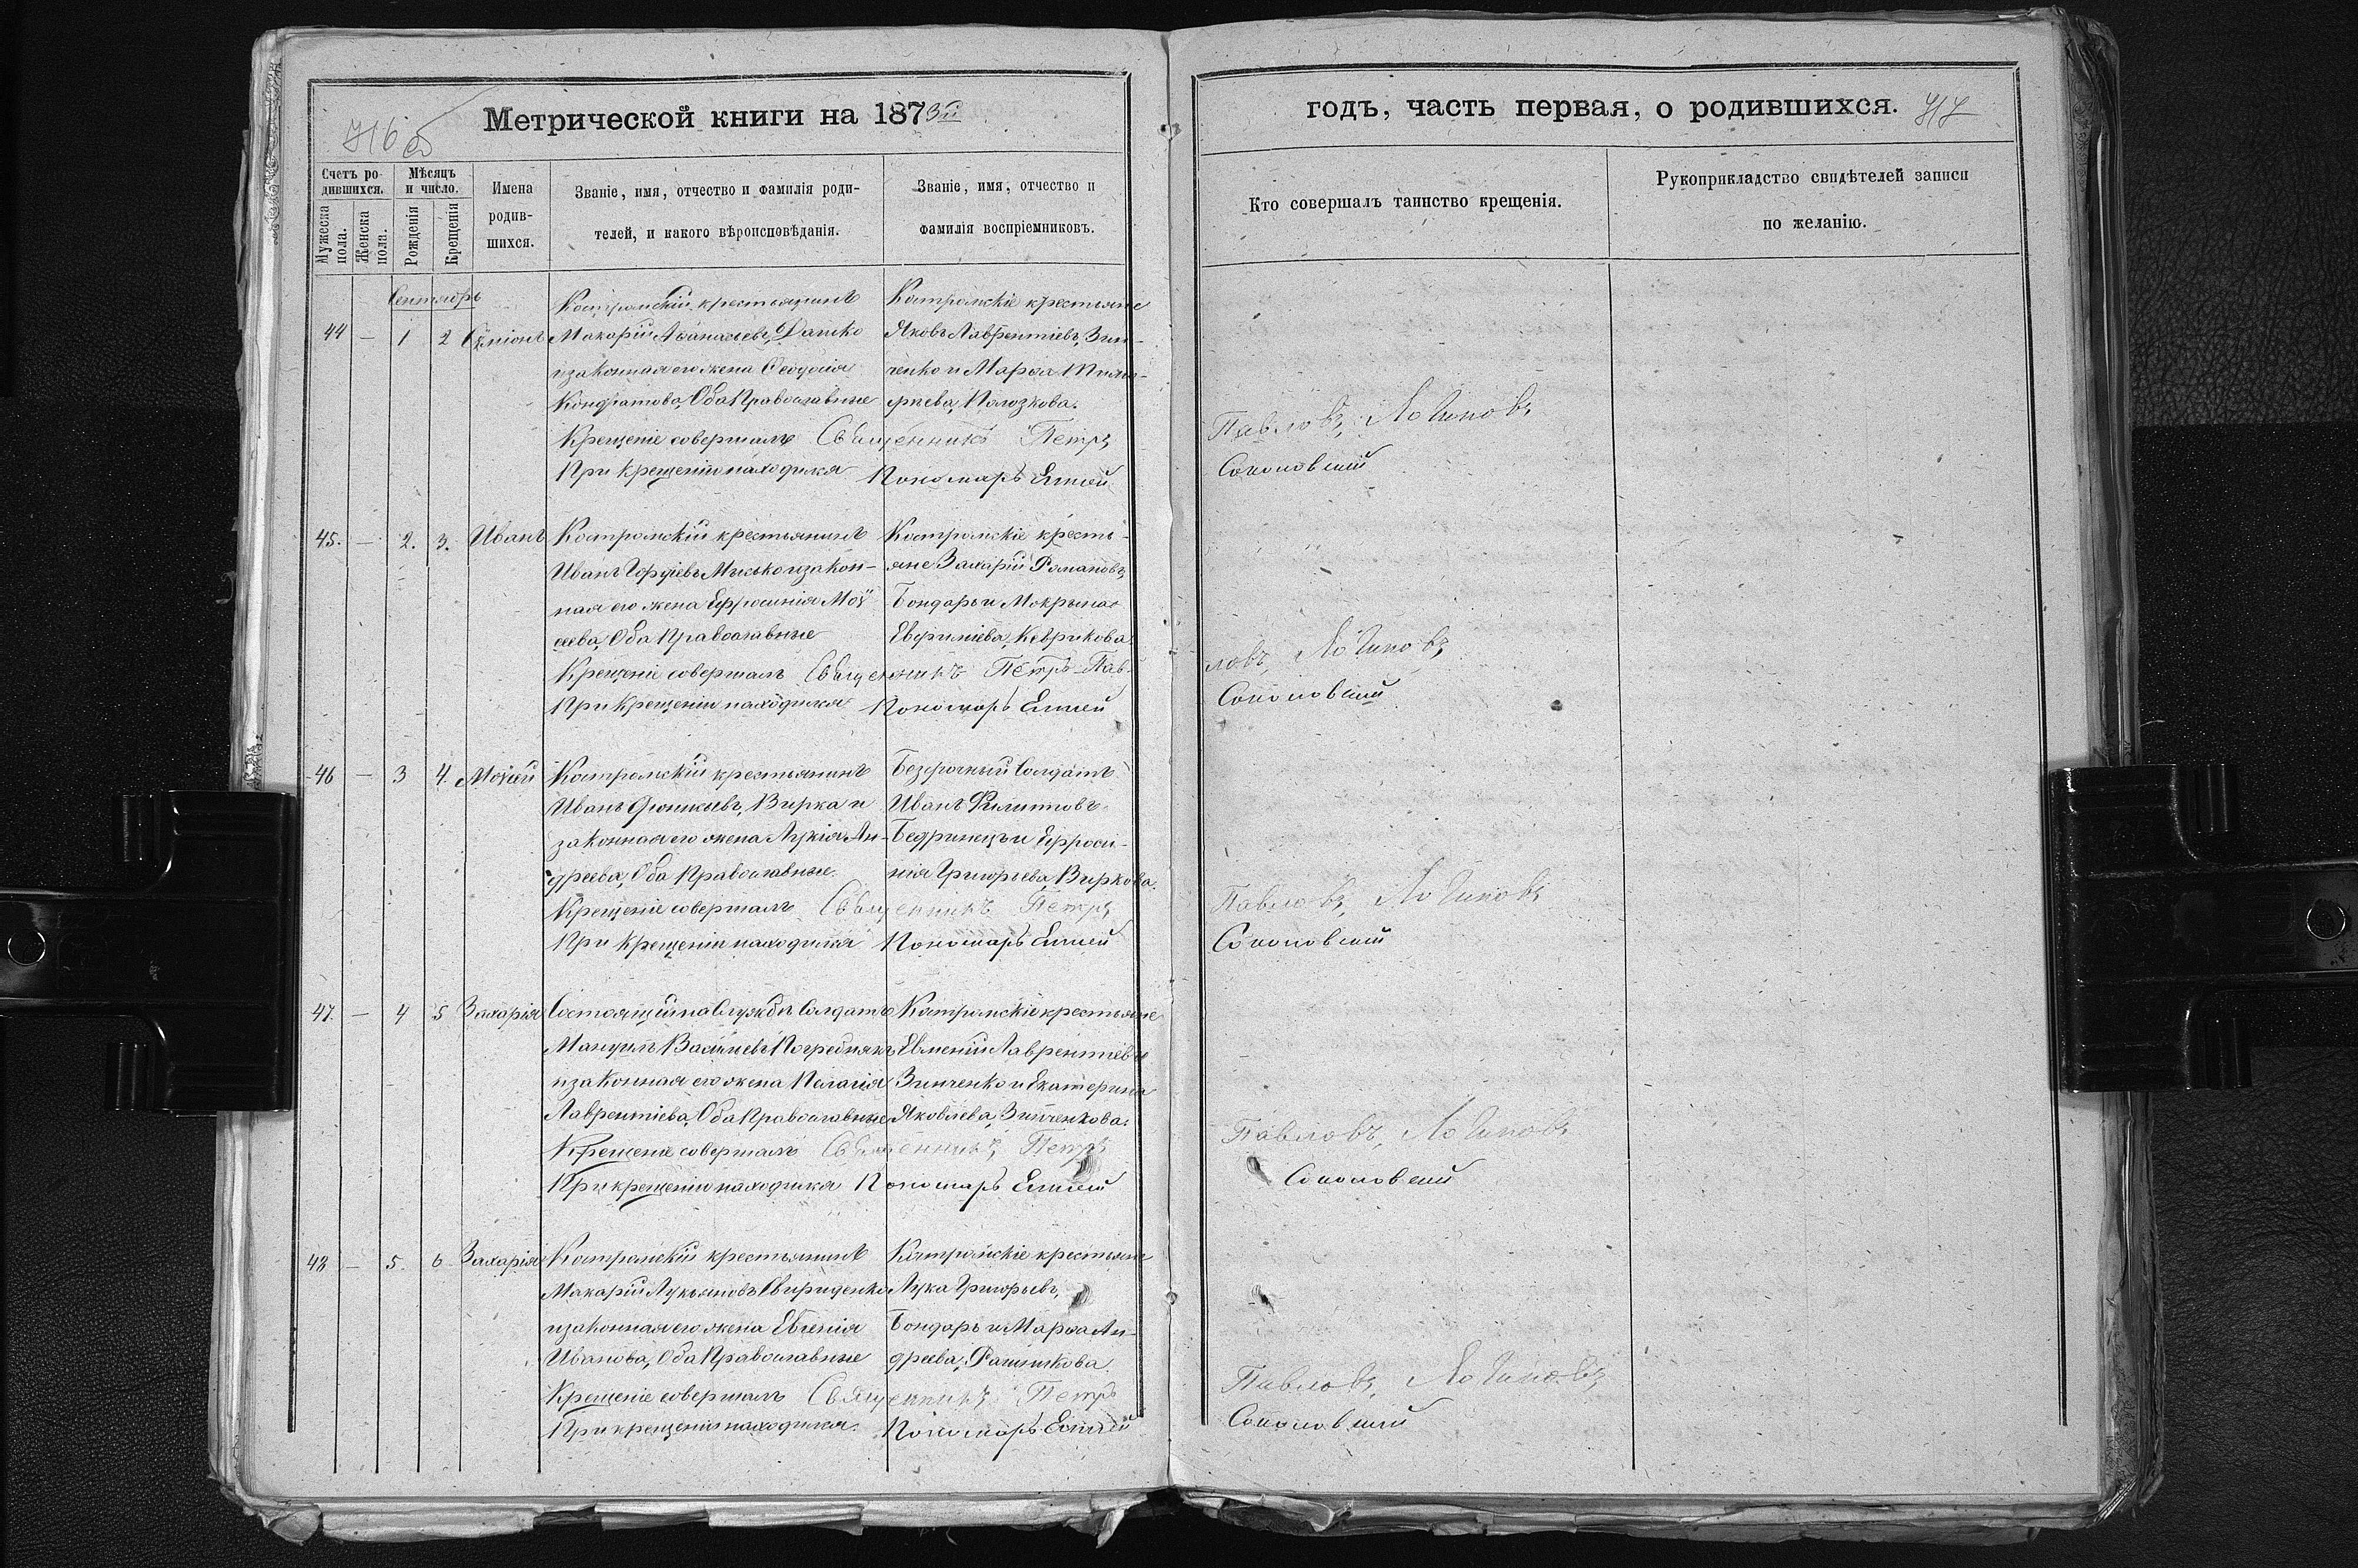 716 об
Метрической книги на 1873й
Счетъ родившихся.
Мѣсяцъ и число.
Мужеска пола.
Женска пола.
Рожденія
Крещенія
Имена родившихся.
Званіе, имя, отчество и фамилія родителей, и какого вѣроисповѣданія.
Званіе, имя, отчество и фамилія воспріемниковъ.
Сентябрь
44 — 1 2
Костромскій крестьянинъ
Макарій Аѳанасьевъ, Данько
и законная его жена Ѳеодосія
Кондратова, Оба Православные
Костромскіе крестьяне
Яковъ Лаврентіевъ, Зин-
ченко и Марѳа
Полозкова.
Крещеніе совершалъ Священникъ Петръ
При Крещеніи находился Пономарь
45. — 2. 3. Иванъ
Костромскій крестьянинъ
Иванъ Гордіевъ Мисько и закон-
ная его жена Ефросинія Моѵ-
сеева, Оба Православные
Костромскіе кресть-
яне Захарій Романовъ,
Бондарь и Мокрина
Крещеніе совершалъ Священникъ Петръ Пав-
При Крещеніи находился Пономарь
46 — 3 4. Моѵсей
Костромскій крестьянинъ
Иванъ Вирка и
законная его жена Лукія Ан-
дреева, Оба Православные.
Безсрочный Солдатъ
Иванъ Филипповъ
Бедринецъ и Ефроси-
нія Григорьева, Виркова.
Крещеніе совершалъ Священникъ Петръ
При Крещеніи находился Пономарь
47. — 4 5 Захарія
Состоящій на Службѣ Солдатъ
Мануилъ Васильевъ Погребнякъ
и законная его жена Пелагія
Лаврентіева, Оба Православные
Костромскіе крестьяне
Евменій Лаврентіевъ
Зинченко и Екатерина
Яковлева, Зинченкова.
Крещеніе совершалъ Священникъ Петръ
При крещеніи находился Пономарь
48 — 5. 6 Захарія
Костромскій крестьянинъ
Макарій Лукьяновъ Свириденко
и законная его жена Евгенія
Иванова, Оба Православные
Костромскіе крестьяне
Лука Григорьевъ,
Бондарь и Марѳа Ан-
дреева,
Крещеніе совершалъ Священникъ Петръ
При крещеніи находился. Пономарь
годъ, часть первая, о родившихся. 717
Кто совершалъ таинство крещенія.
Рукоприкладство свидѣтелей записи по желанію.
Павловъ, Логиновъ
Соколовскій
ловъ, Логиновъ
Соколовскій
Павловъ, Логиновъ
Соколовскій
Павловъ, Логиновъ
Соколовскій
Павловъ, Логиновъ
Соколовскій